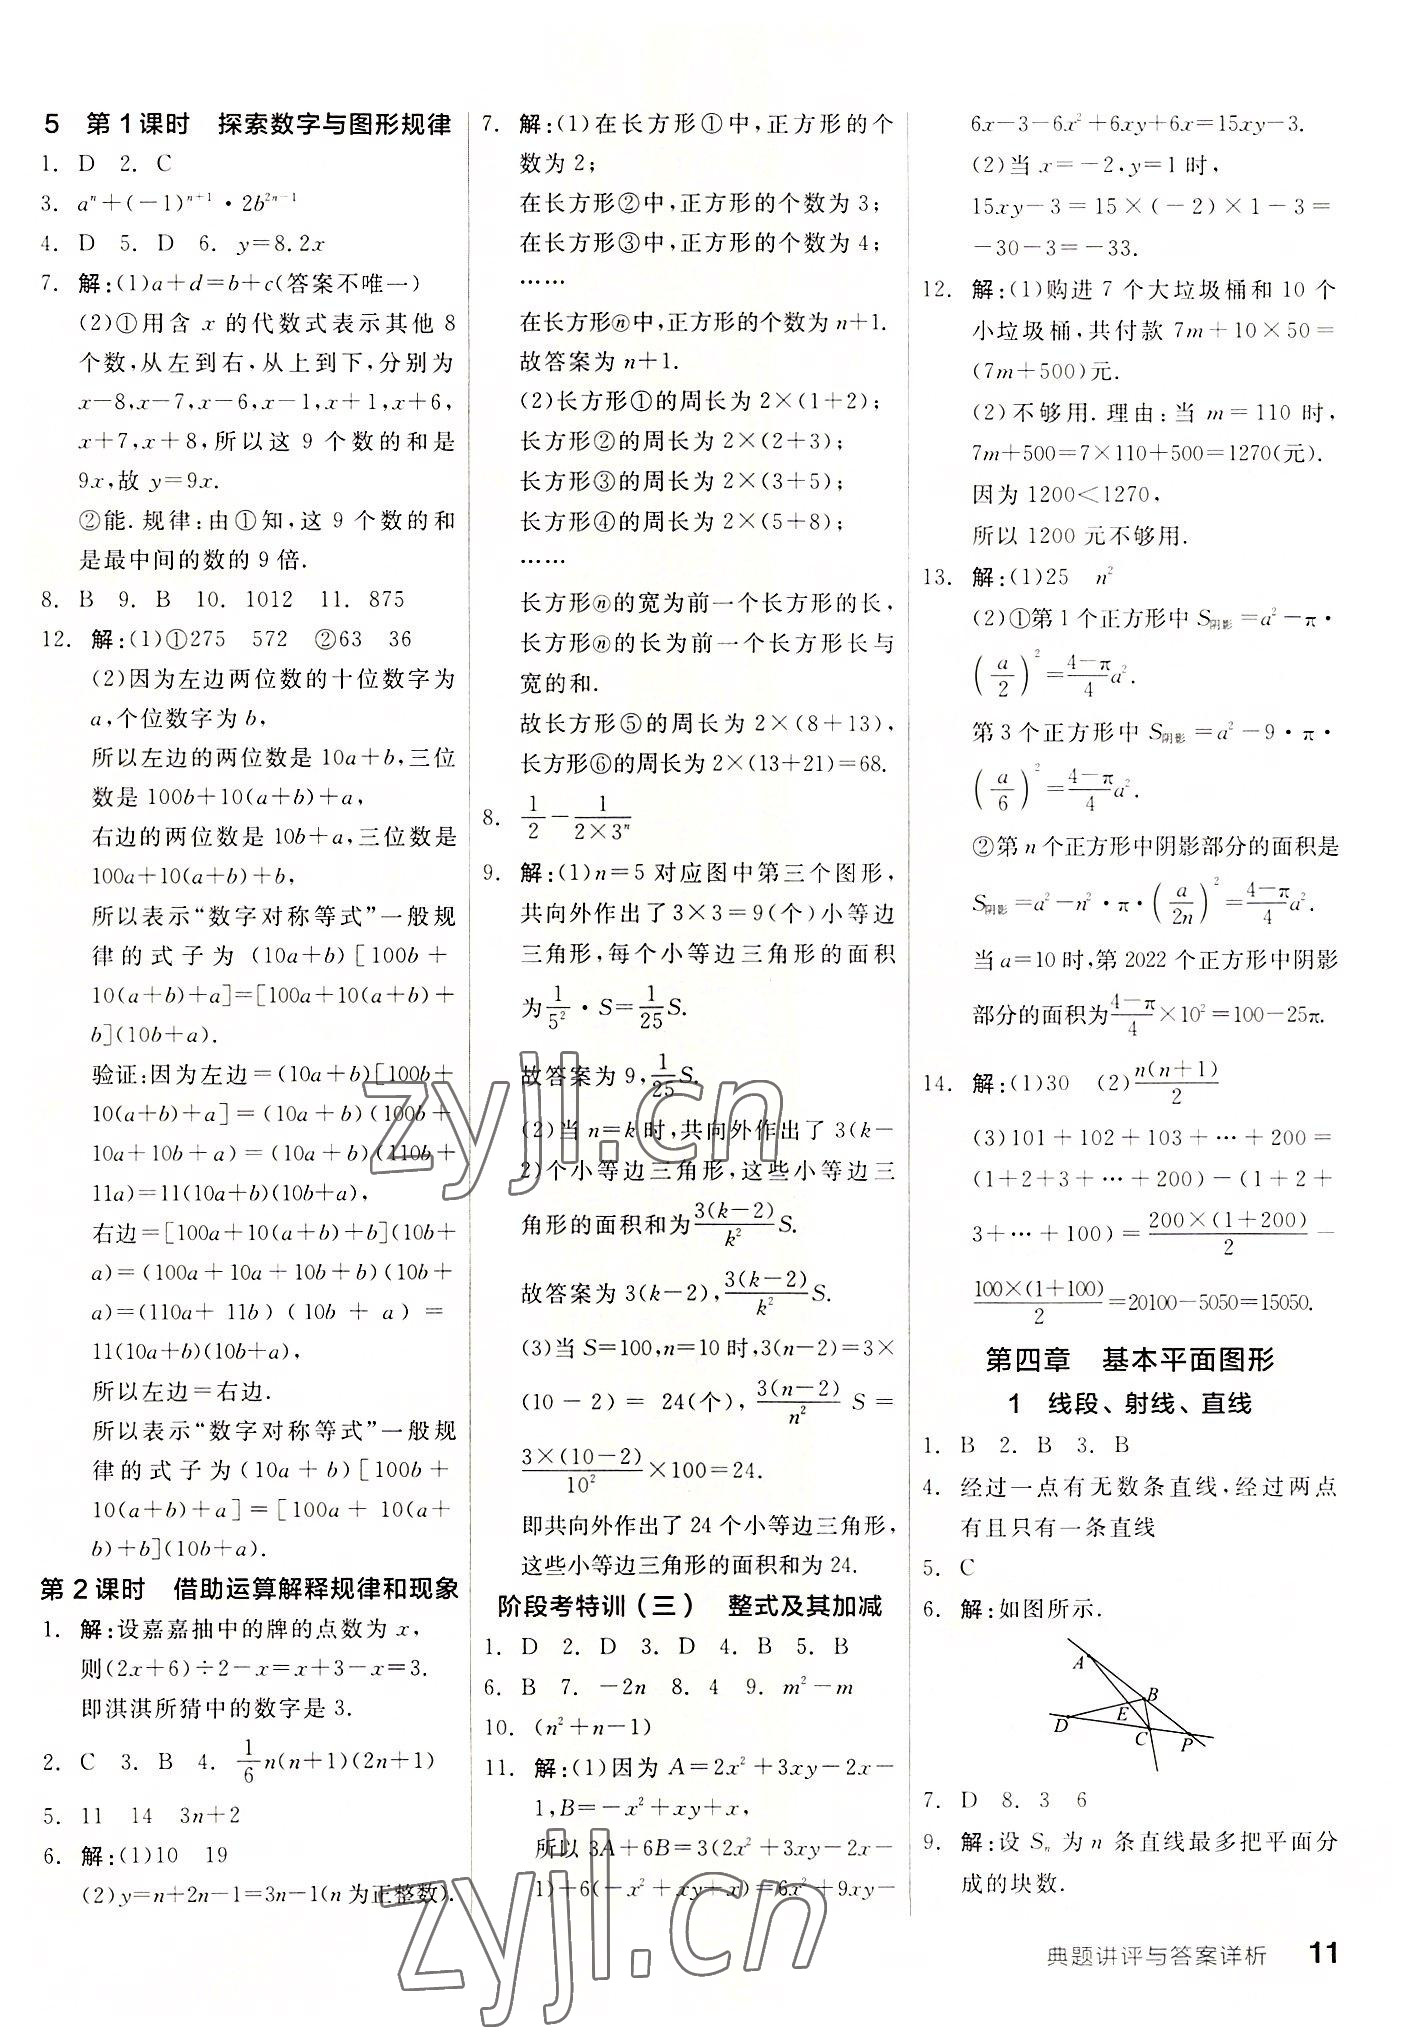 5 第1课时 探索数字与图形规律
1. D 2. C
3. aⁿ+(-1)ⁿ⁺¹·2b²ⁿ⁻¹
4. D 5. D 6. y=8.2x
7. 解:(1)a+d=b+c(答案不唯一)
(2)①用含 x 的代数式表示其他 8
个数,从左到右,从上到下,分别为
x-8,x-7,x-6,x-1,x+1,x+6,
x+7,x+8,所以这 9 个数的和是
9x,故 y=9x.
②能.规律:由①知,这 9 个数的和
是最中间的数的 9 倍.
8. B 9. B 10. 1012 11. 875
12. 解:(1)①275 572 ②63 36
(2)因为左边两位数的十位数字为
a,个位数字为 b,
所以左边的两位数是 10a+b,三位
数是 100b+10(a+b)+a,
右边的两位数是 10b+a,三位数是
100a+10(a+b)+b,
所以表示“数字对称等式”一般规
律的式子为 (10a+b)[100b+
10(a+b)+a]=[100a+10(a+b)+
b](10b+a).
验证:因为左边=(10a+b)[100b+
10(a+b)+a]=(10a+b)(100b+
10a+10b+a)=(10a+b)(110b+
11a)=11(10a+b)(10b+a),
右边=[100a+10(a+b)+b](10b+
a)=(100a+10a+10b+b)(10b+
a)=(110a+11b)(10b+a)=
11(10a+b)(10b+a),
所以左边=右边.
所以表示“数字对称等式”一般规
律的式子为(10a+b)[100b+
10(a+b)+a]=[100a+10(a+
b)+b](10b+a).
第2课时 借助运算解释规律和现象
1. 解:设嘉嘉抽中的牌的点数为 x,
则(2x+6)÷2-x=x+3-x=3.
即淇淇所猜中的数字是 3.
2. C 3. B 4. 1/6 n(n+1)(2n+1)
5. 11 14 3n+2
6. 解:(1)10 19
(2)y=n+2n-1=3n-1(n 为正整数).
7. 解:(1)在长方形①中,正方形的个
数为 2;
在长方形②中,正方形的个数为 3;
在长方形③中,正方形的个数为 4;
……
在长方形ⓝ中,正方形的个数为 n+1.
故答案为 n+1.
(2)长方形①的周长为 2×(1+2);
长方形②的周长为 2×(2+3);
长方形③的周长为 2×(3+5);
长方形④的周长为 2×(5+8);
……
长方形ⓝ的宽为前一个长方形的长,
长方形ⓝ的长为前一个长方形长与
宽的和.
故长方形⑤的周长为 2×(8+13),
长方形⑥的周长为 2×(13+21)=68.
8. 1/2-1/(2×3ⁿ)
9. 解:(1)n=5 对应图中第三个图形,
共向外作出了 3×3=9(个)小等边
三角形,每个小等边三角形的面积
为1/5²·S=1/25 S.
故答案为 9,1/25 S.
(2)当 n=k 时,共向外作出了 3(k-
2)个小等边三角形,这些小等边三
角形的面积和为3(k-2)/k² S.
故答案为 3(k-2),3(k-2)/k² S.
(3)当 S=100,n=10 时,3(n-2)=3×
(10-2)=24(个),3(n-2)/n² S=
3×(10-2)/10²×100=24.
即共向外作出了 24 个小等边三角形,
这些小等边三角形的面积和为 24.
阶段考特训(三) 整式及其加减
1. D 2. D 3. D 4. B 5. B
6. B 7. -2n 8. 4 9. m²-m
10. (n²+n-1)
11. 解:(1)因为 A=2x²+3xy-2x-
1,B=-x²+xy+x,
所以 3A+6B=3(2x²+3xy-2x-
1)+6(-x²+xy+x)=6x²+9xy-
6x-3-6x²+6xy+6x=15xy-3.
(2)当 x=-2,y=1 时,
15xy-3=15×(-2)×1-3=
-30-3=-33.
12. 解:(1)购进 7 个大垃圾桶和 10 个
小垃圾桶,共付款 7m+10×50=
(7m+500)元.
(2)不够用.理由:当 m=110 时,
7m+500=7×110+500=1270(元).
因为 1200<1270,
所以 1200 元不够用.
13. 解:(1)25 n²
(2)①第 1 个正方形中 S阴影=a²-π·
(a/2)²=(4-π)/4 a².
第 3 个正方形中 S阴影=a²-9·π·
(a/6)²=(4-π)/4 a².
②第 n 个正方形中阴影部分的面积是
S阴影=a²-n²·π·(a/2n)²=(4-π)/4 a².
当 a=10 时,第 2022 个正方形中阴影
部分的面积为(4-π)/4×10²=100-25π.
14. 解:(1)30 (2)n(n+1)/2
(3)101+102+103+…+200=
(1+2+3+…+200)-(1+2+
3+…+100)=200×(1+200)/2-
100×(1+100)/2=20100-5050=15050.
第四章 基本平面图形
1 线段、射线、直线
1. B 2. B 3. B
4. 经过一点有无数条直线,经过两点
有且只有一条直线
5. C
6. 解:如图所示.
A
B
D
E
C
P
7. D 8. 3 6
9. 解:设 Sₙ 为 n 条直线最多把平面分
成的块数.
典题讲评与答案详析 11
zyjl.cn
zyjl.cn